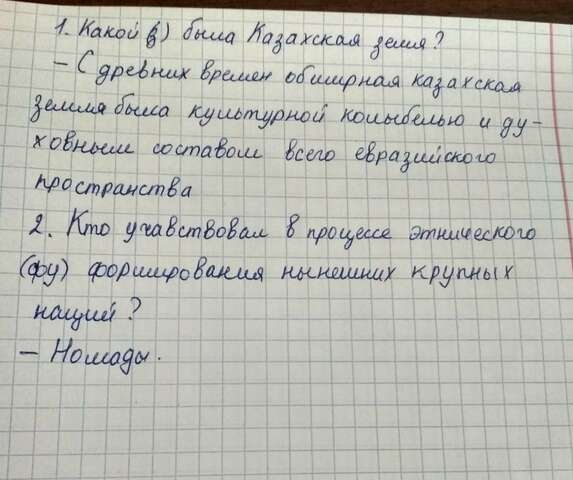 1. Какой в) была Казахская земля?
– С древних времен обширная казахская
земля была культурной колыбелью и ду-
ховным составом всего евразийского
пространства
2. Кто учавствовал в процессе этнического
(фу) формирования нынешних крупных
наций?
– Номады.